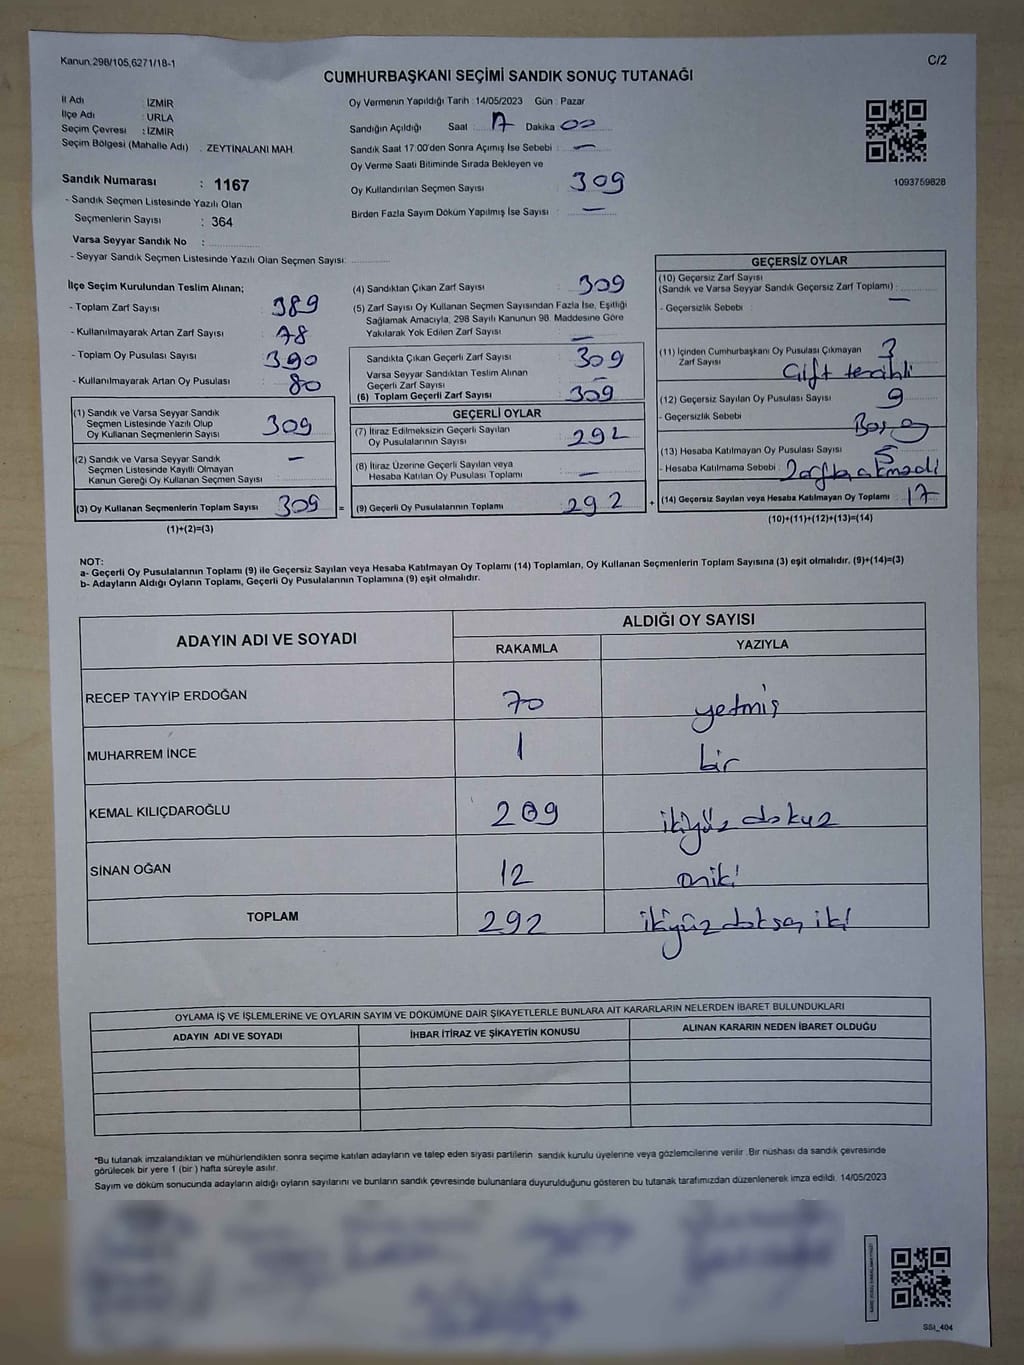 Kanun.298/105,6271/18-1
C/2
CUMHURBAŞKANI SEÇİMİ SANDIK SONUÇ TUTANAĞI
İl Adı : İZMİR
İlçe Adı : URLA
Seçim Çevresi : İZMİR
Seçim Bölgesi (Mahalle Adı) . ZEYTİNALANI MAH.
Sandık Numarası : 1167
- Sandık Seçmen Listesinde Yazılı Olan
Seçmenlerin Sayısı : 364
Varsa Seyyar Sandık No :
- Seyyar Sandık Seçmen Listesinde Yazılı Olan Seçmen Sayısı:
Oy Vermenin Yapıldığı Tarih : 14/05/2023 Gün : Pazar
Sandığın Açıldığı Saat 17 Dakika 00
Sandık Saat 17:00'den Sonra Açılmış İse Sebebi : —
Oy Verme Saati Bitiminde Sırada Bekleyen ve
Oy Kullandırılan Seçmen Sayısı : 309
Birden Fazla Sayım Döküm Yapılmış İse Sayısı : —
1093759828
İlçe Seçim Kurulundan Teslim Alınan;
- Toplam Zarf Sayısı : 389
- Kullanılmayarak Artan Zarf Sayısı : 78
- Toplam Oy Pusulası Sayısı : 390
- Kullanılmayarak Artan Oy Pusulası : 80
(1) Sandık ve Varsa Seyyar Sandık
Seçmen Listesinde Yazılı Olup
Oy Kullanan Seçmenlerin Sayısı : 309
(2) Sandık ve Varsa Seyyar Sandık
Seçmen Listesinde Kayıtlı Olmayan
Kanun Gereği Oy Kullanan Seçmen Sayısı : —
(3) Oy Kullanan Seçmenlerin Toplam Sayısı : 309
(1)+(2)=(3)
=
(4) Sandıktan Çıkan Zarf Sayısı : 309
(5) Zarf Sayısı Oy Kullanan Seçmen Sayısından Fazla İse, Eşitliği
Sağlamak Amacıyla, 298 Sayılı Kanunun 98. Maddesine Göre
Yakılarak Yok Edilen Zarf Sayısı : —
Sandıkta Çıkan Geçerli Zarf Sayısı : 309
Varsa Seyyar Sandıktan Teslim Alınan
Geçerli Zarf Sayısı : —
(6) Toplam Geçerli Zarf Sayısı : 309
GEÇERLİ OYLAR
(7) İtiraz Edilmeksizin Geçerli Sayılan
Oy Pusulalarının Sayısı : 292
(8) İtiraz Üzerine Geçerli Sayılan veya
Hesaba Katılan Oy Pusulası Toplamı : —
(9) Geçerli Oy Pusulalarının Toplamı : 292
+
GEÇERSİZ OYLAR
(10) Geçersiz Zarf Sayısı
(Sandık ve Varsa Seyyar Sandık Geçersiz Zarf Toplamı) : —
- Geçersizlik Sebebi :
(11) İçinden Cumhurbaşkanı Oy Pusulası Çıkmayan
Zarf Sayısı : 3
Çift tercihli
(12) Geçersiz Sayılan Oy Pusulası Sayısı : 9
- Geçersizlik Sebebi : Boş
(13) Hesaba Katılmayan Oy Pusulası Sayısı : 5
- Hesaba Katılmama Sebebi : Zarftan çıkmadı
(14) Geçersiz Sayılan veya Hesaba Katılmayan Oy Toplamı : 17
(10)+(11)+(12)+(13)=(14)
NOT:
a- Geçerli Oy Pusulalarının Toplamı (9) ile Geçersiz Sayılan veya Hesaba Katılmayan Oy Toplamı (14) Toplamları, Oy Kullanan Seçmenlerin Toplam Sayısına (3) eşit olmalıdır. (9)+(14)=(3)
b- Adayların Aldığı Oyların Toplamı, Geçerli Oy Pusulalarının Toplamına (9) eşit olmalıdır.
ADAYIN ADI VE SOYADI
ALDIĞI OY SAYISI
RAKAMLA YAZIYLA
RECEP TAYYİP ERDOĞAN 70 yetmiş
MUHARREM İNCE 1 bir
KEMAL KILIÇDAROĞLU 209 ikiyüz dokuz
SİNAN OĞAN 12 oniki
TOPLAM 292 ikiyüz doksan iki
OYLAMA İŞ VE İŞLEMLERİNE VE OYLARIN SAYIM VE DÖKÜMÜNE DAİR ŞİKAYETLERLE BUNLARA AİT KARARLARIN NELERDEN İBARET BULUNDUKLARI
ADAYIN ADI VE SOYADI İHBAR İTİRAZ VE ŞİKAYETİN KONUSU ALINAN KARARIN NEDEN İBARET OLDUĞU
*Bu tutanak imzalandıktan ve mühürlendikten sonra seçime katılan adayların ve talep eden siyasi partilerin sandık kurulu üyelerine veya gözlemcilerine verilir .Bir nüshası da sandık çevresinde
görülecek bir yere 1 (bir ) hafta süreyle asılır.
Sayım ve döküm sonucunda adayların aldığı oyların sayılarını ve bunların sandık çevresinde bulunanlara duyurulduğunu gösteren bu tutanak tarafımızdan düzenlenerek imza edildi. 14/05/2023
SSI_404